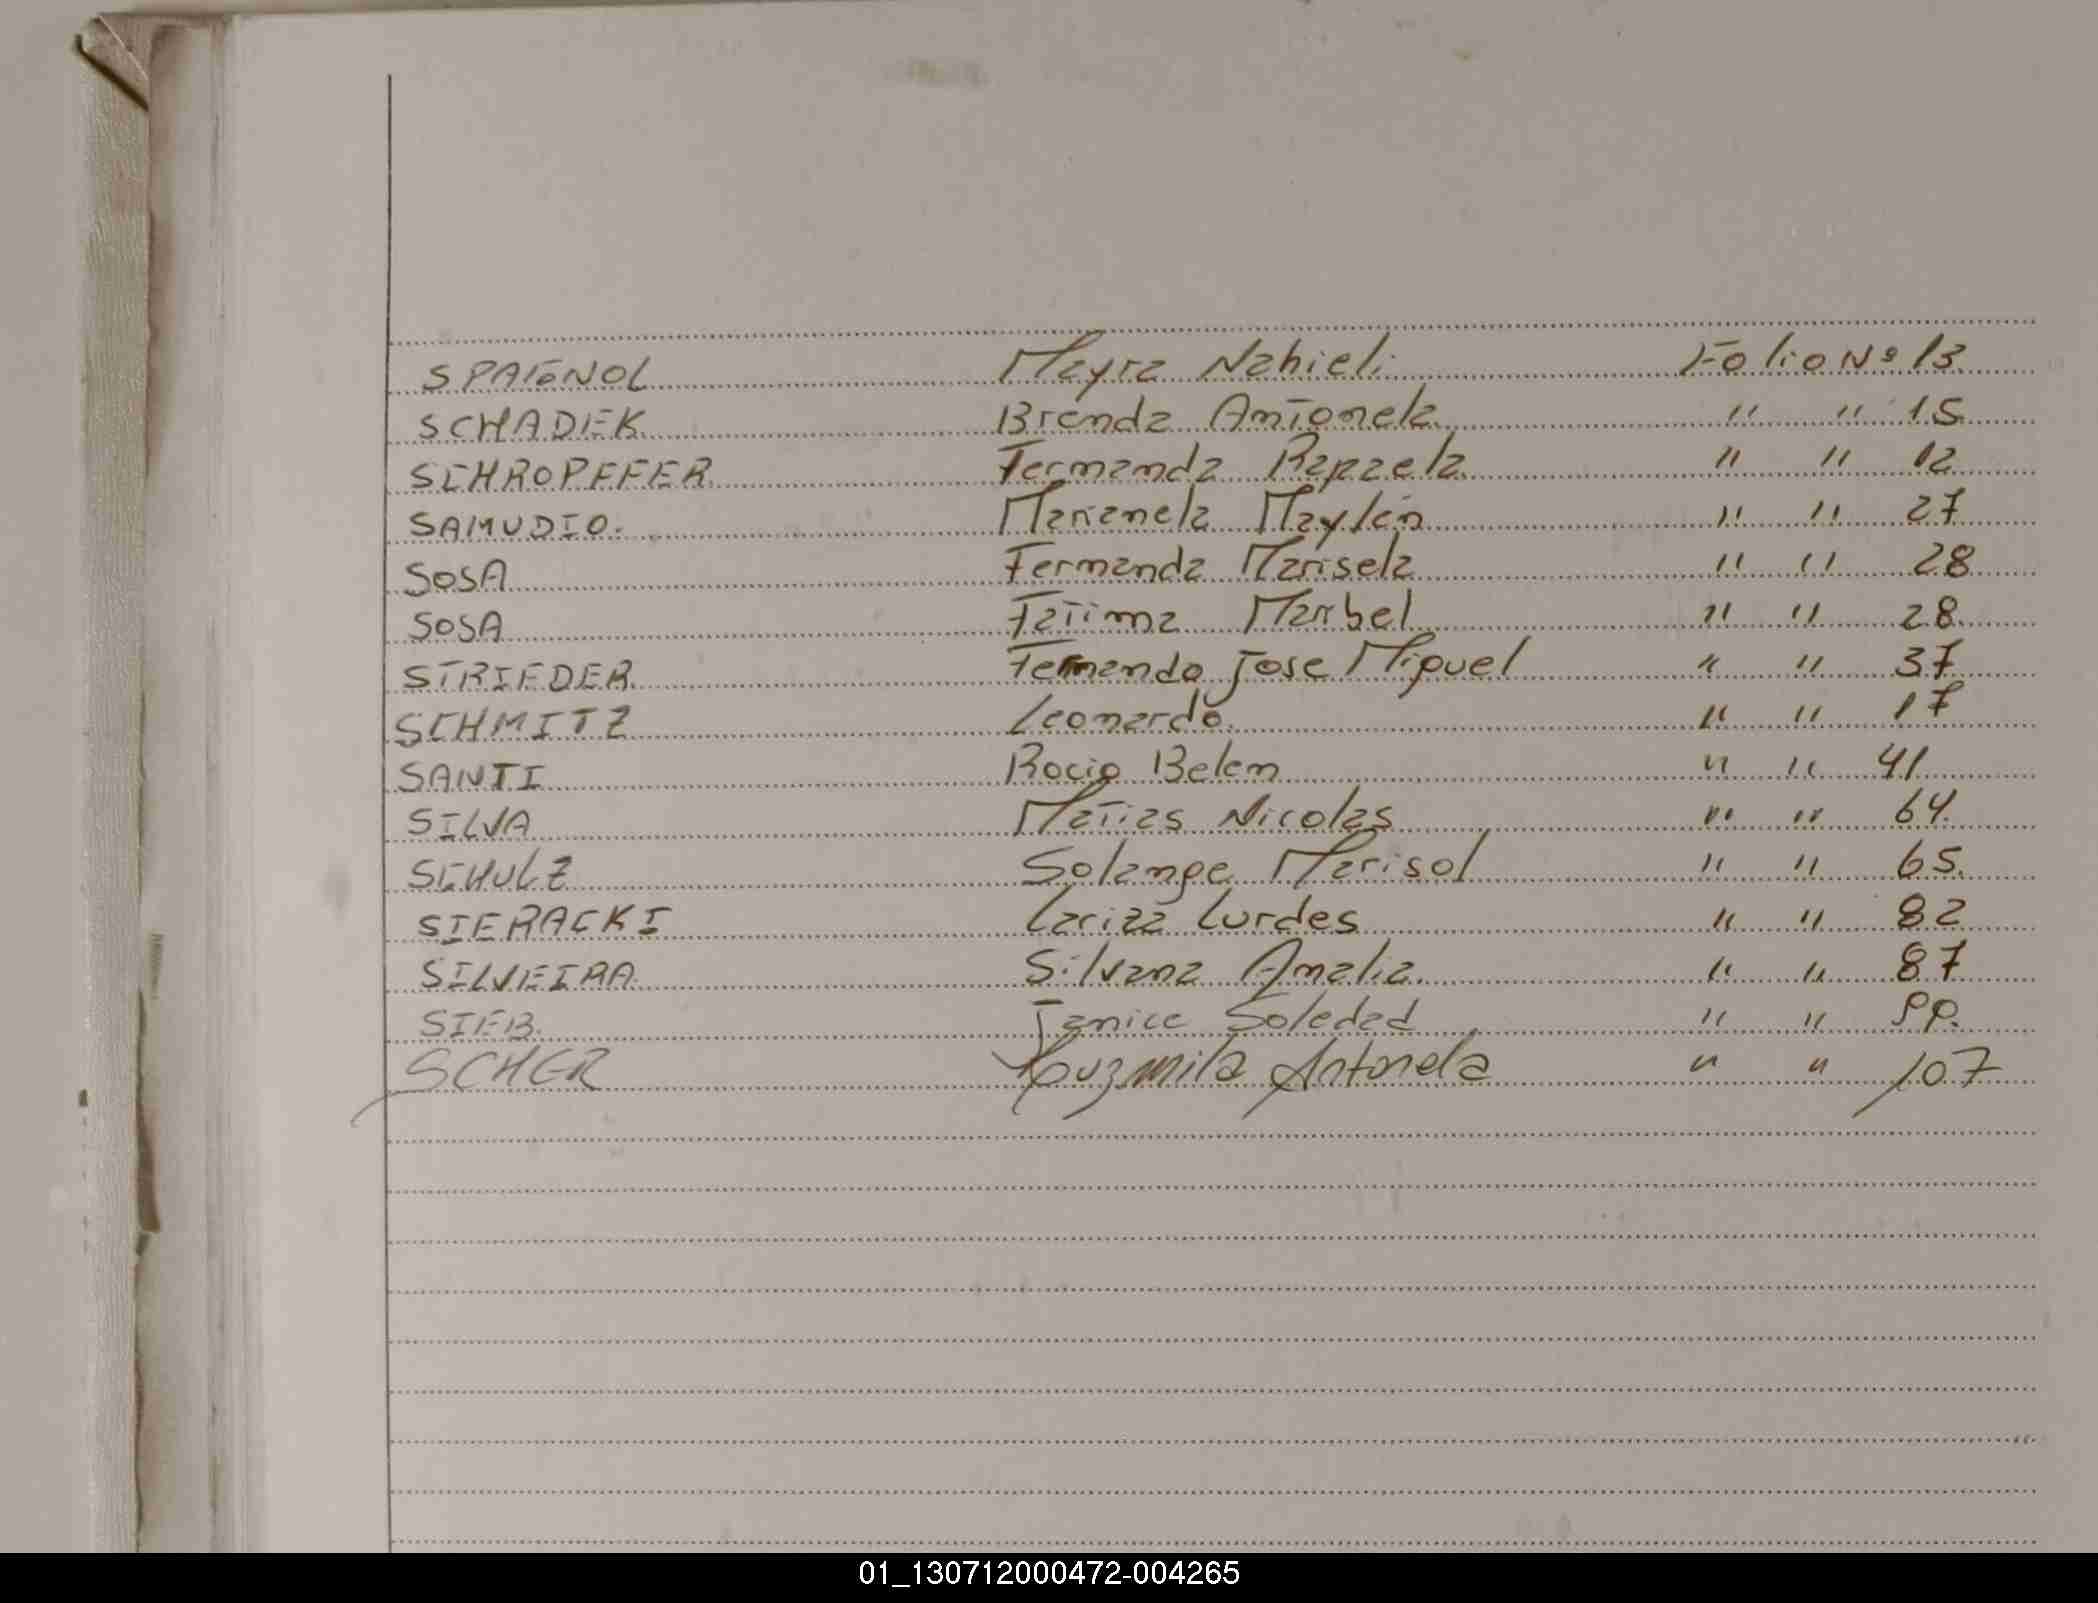 SPAGNOL Mayra Nahieli Folio Nº 13
SCHADEK Brenda Antonela " " 15
SCHROPFFER Fernanda Rapaela " " 12
SAMUDIO. Marianela Maylen " " 27
SOSA Fernanda Marisela " " 28
SOSA Fatima Maribel " " 28
STRIEDER Fernando Jose Miguel " " 37
SCHMITZ Leonardo " " 17
SANTI Rocio Belen " " 41
SILVA Matias Nicolas " " 64
SCHULZ Solange Marisol " " 65
SIERACKI Lurdes " " 82
SILVEIRA Silvana Amalia " " 87
SIEB Janice Soledad " "
SCHER Luzmila Antonela " " 107
01_130712000472-004265